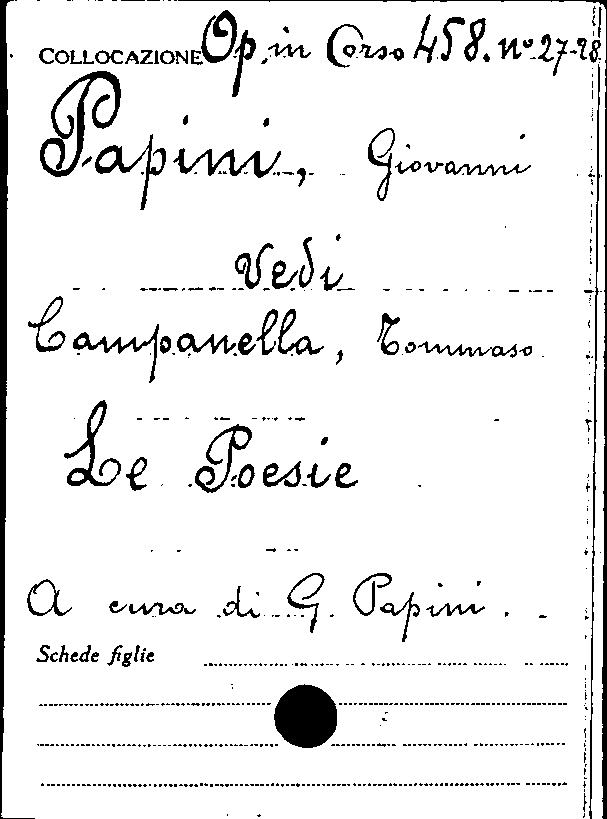 COLLOCAZIONE Op. in Corso 458. nº 27-28
Papini, Giovanni
Vedi
Campanella, Tommaso
Le Poesie
A cura di G. Papini.
Schede figlie